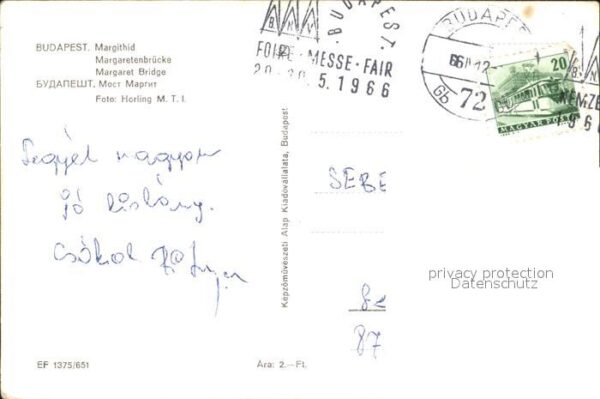 BUDAPEST. Margithid
Margaretenbrücke
Margaret Bridge
БУДАПЕШТ. Мост Маргит
Foto: Horling M. T. I.
Legyél nagyon
jó kislány.
Csókol
EF 1375/651
Ára: 2.–Ft.
Képzőművészeti Alap Kiadóvállalata, Budapest
BNV
BUDAPEST.
FOIRE · MESSE · FAIR
5. 1966
BUDAPEST
72
20
MAGYAR POSTA
NEMZE
SEBE
87
privacy protection
Datenschutz